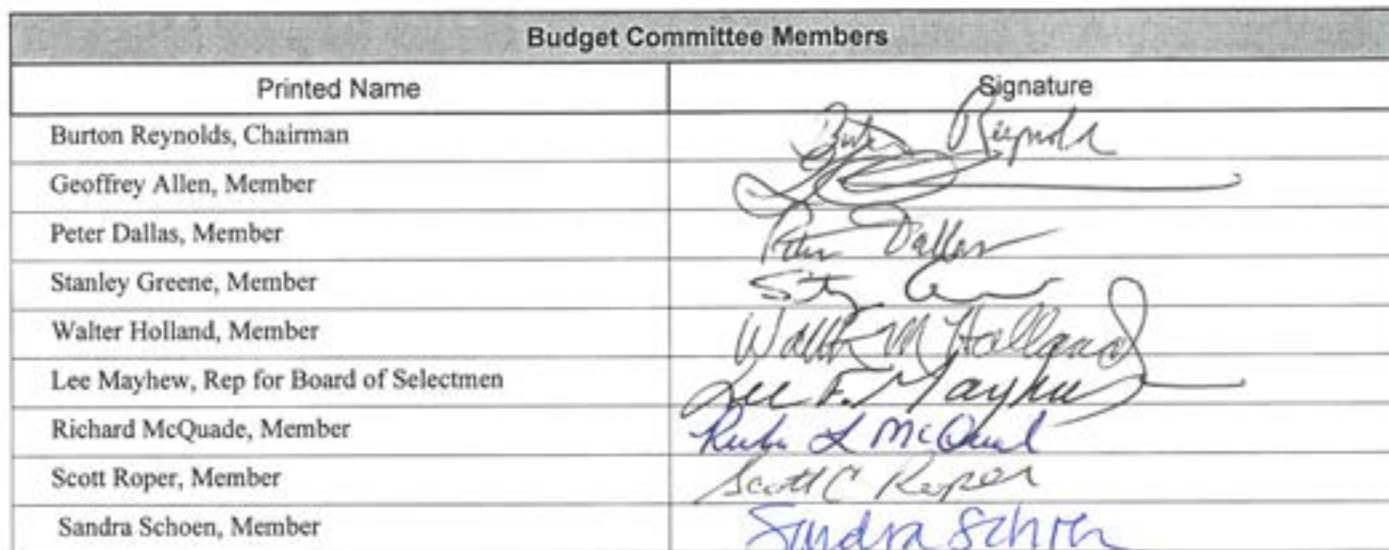 Budget Committee Members
Printed Name Signature
Burton Reynolds, Chairman Burt Reynolds
Geoffrey Allen, Member
Peter Dallas, Member Peter Dallas
Stanley Greene, Member
Walter Holland, Member Walter M Holland
Lee Mayhew, Rep for Board of Selectmen Lee F. Mayhew
Richard McQuade, Member Richard L McQuade
Scott Roper, Member Scott C Roper
Sandra Schoen, Member Sandra Schoen